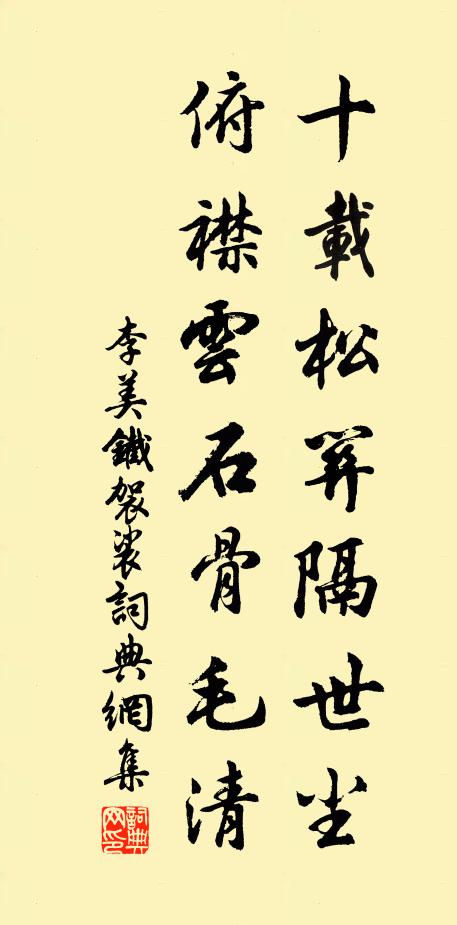 十載松關隔世尘
俯襟雲石骨毛清
李美鐵袈裟詞典網集
詞典網印